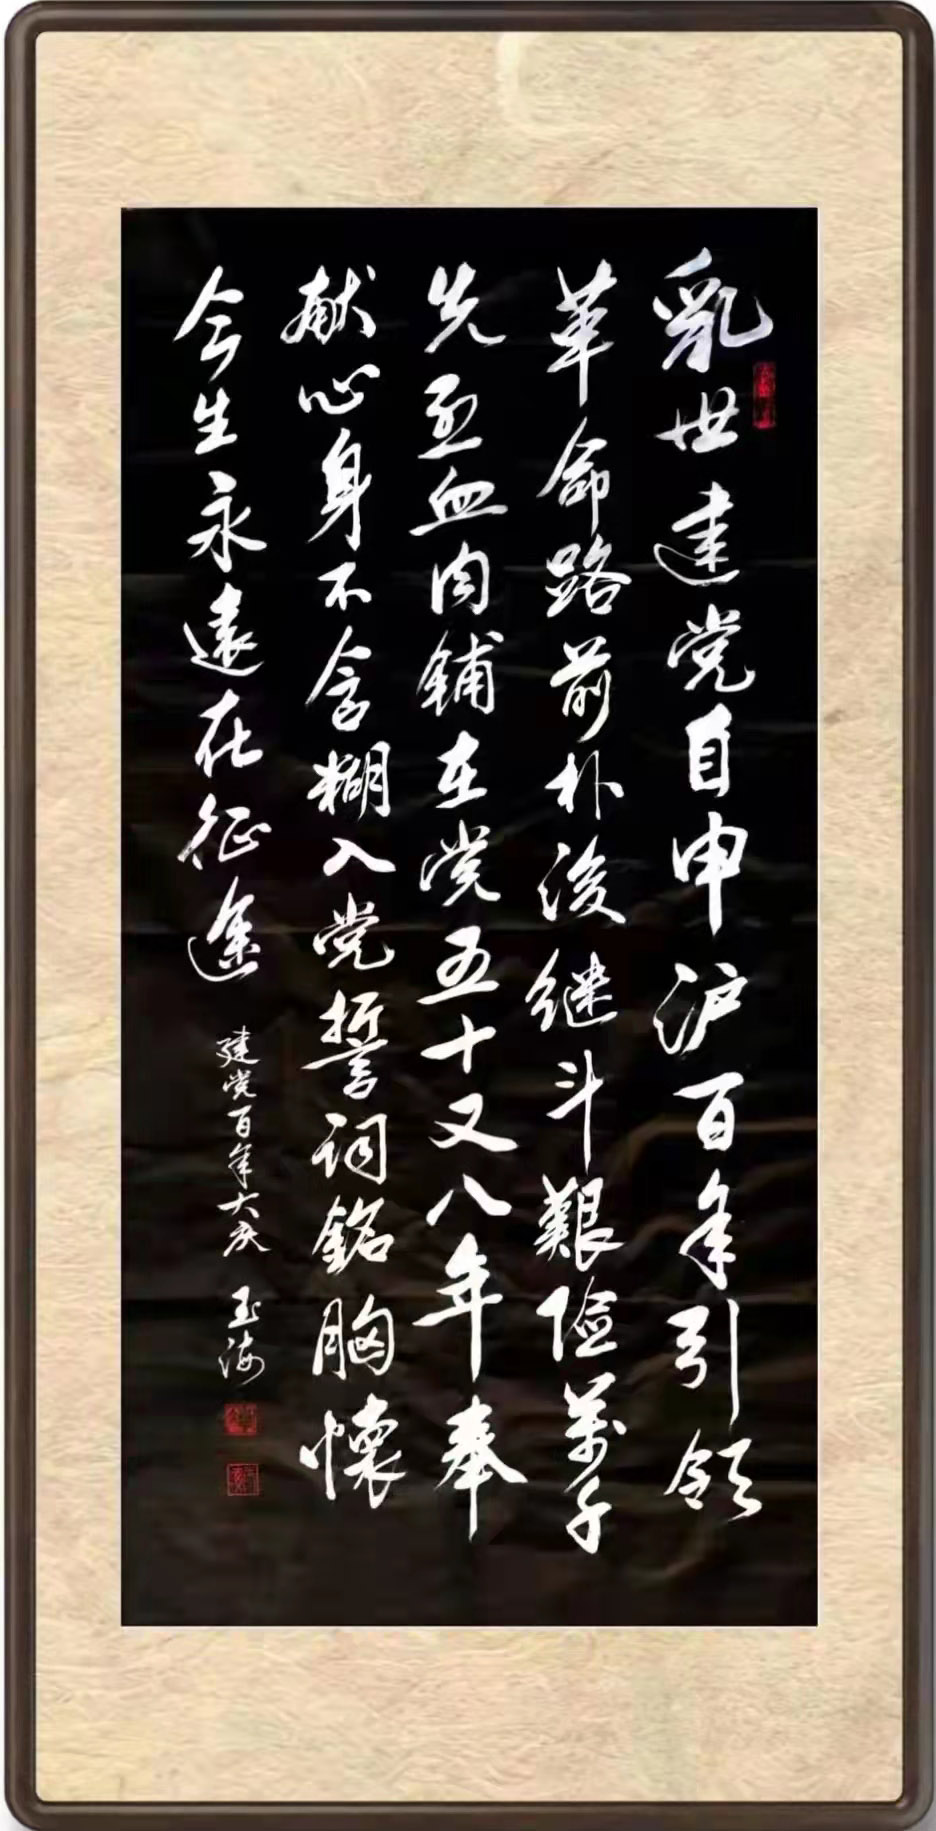 乱世建党自申沪百年引领
革命路前朴後继斗艰险万千
先烈血肉铺在党五十又八年奉
献心身不含糊入党誓词銘胸懷
今生永遠在征途
建党百年大庆 玉海